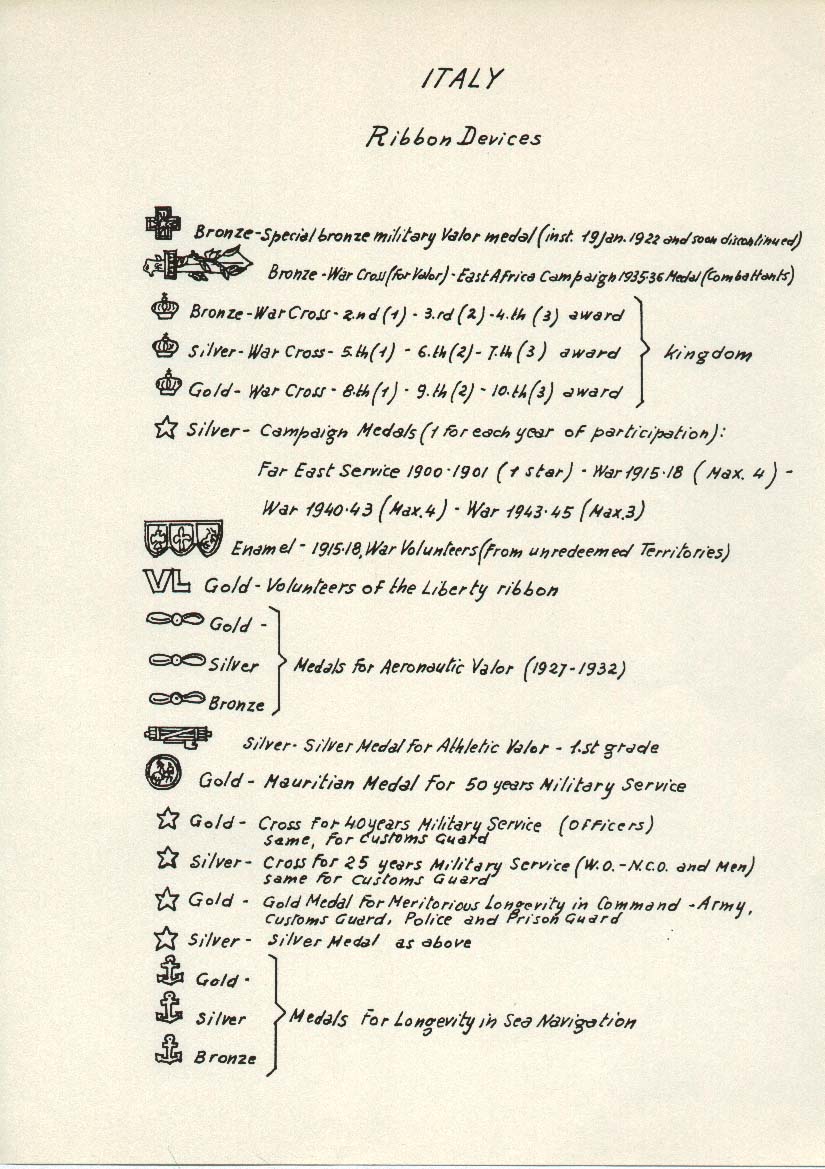 ITALY
Ribbon Devices
Bronze-Special bronze military Valor medal (inst. 19 Jan. 1922 and soon discontinued)
Bronze-War Cross (for Valor)-East Africa Campaign 1935-36 Medal (Combattants)
Bronze-War Cross-2.nd (1) - 3.rd (2) -4.th (3) award
Silver-War Cross- 5.th (1) - 6.th (2)- 7.th (3) award
kingdom
Gold- War Cross - 8.th (1) - 9.th (2) - 10.th (3) award
Silver- Campaign Medals (1 for each year of participation):
Far East Service 1900-1901 (1 star) - War 1915-18 (Max. 4) -
War 1940-43 (Max. 4) - War 1943-45 (Max. 3)
Enamel - 1915-18, War Volunteers (From unredeemed Territories)
VL Gold-Volunteers of the Liberty ribbon
Gold -
Silver
Medals for Aeronautic Valor (1927-1932)
Bronze
Silver- Silver Medal for Athletic Valor - 1.st grade
Gold - Mauritian Medal for 50 years Military Service
Gold - Cross for 40 years Military Service (Officers)
same, for Customs Guard
Silver- Cross for 25 years Military Service (W.O.-N.C.O. and Men)
same for Customs Guard
Gold - Gold Medal for Meritorious Longevity in Command -Army,
Customs Guard, Police and Prison Guard
Silver - Silver Medal as above
Gold -
Silver
Medals for Longevity in Sea Navigation
Bronze